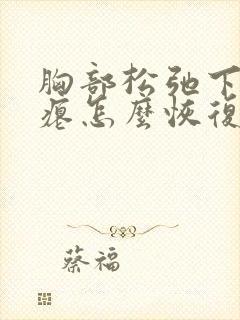 胸部松弛下
瘪怎麼恢復
蔡福